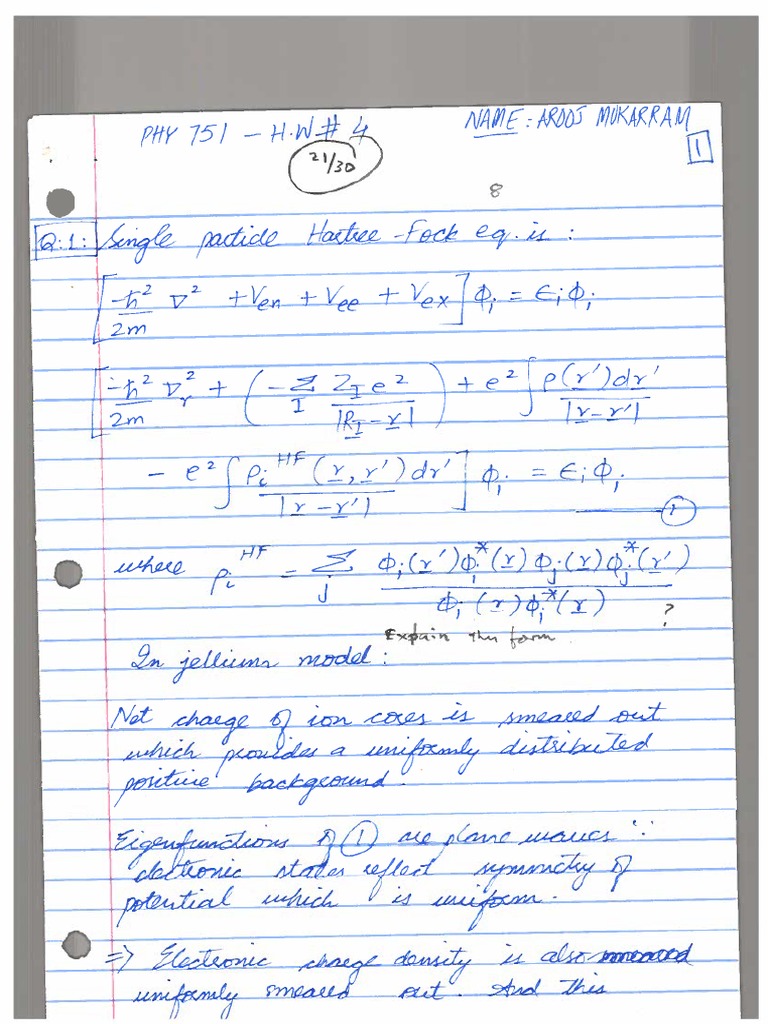 PHY 751 – H.W # 4
NAME: AROOJ MUKARRAM
1
21/30
8
Q:1: Single particle Hartree-Fock eq. is:
[-ħ²/2m ∇² + Ven + Vee + Vex] Φi = ϵi Φi
[-ħ²/2m ∇r² + (-Σ_I Z_I e²/|R_I - r|) + e² ∫ ρ(r')dr'/|r - r'|
- e² ∫ ρi^HF (r, r') dr'/|r - r'|] Φi = ϵi Φi
1
where ρi^HF = Σ_j Φi(r')Φi*(r) Φj(r)Φj*(r')/Φi(r)Φi*(r)
?
Explain this form
In jellium model:
Net charge of ion cores is smeared out
which provides a uniformly distributed
positive background.
Eigenfunctions of ① are plane waves ∵
electronic states reflect symmetry of
potential which is uniform.
⇒ Electronic charge density is also
uniformly smeared out. And this